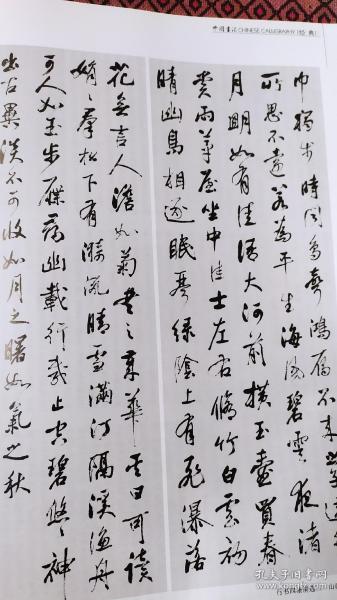 中国书法 CHINESE CALLIGRAPHY [经典]
巾獨步時聞鳥聲鴻雁不來之子遠
所思不遠若為平生海風碧雲夜渚
月明如有佳語大河前橫玉壺買春
賞雨茅屋坐中佳士左右脩竹白雲初
晴幽鳥相逐眠琴綠陰上有飛瀑落
花無言人澹如菊書之歲華其曰可讀
娟〻羣松下有漪流晴雪滿汀隔溪漁舟
可人如玉步屧尋幽載行載止空碧悠〻神
出古異淡不可收如月之曙如氣之秋
行书四条屏选
孔夫子旧书网